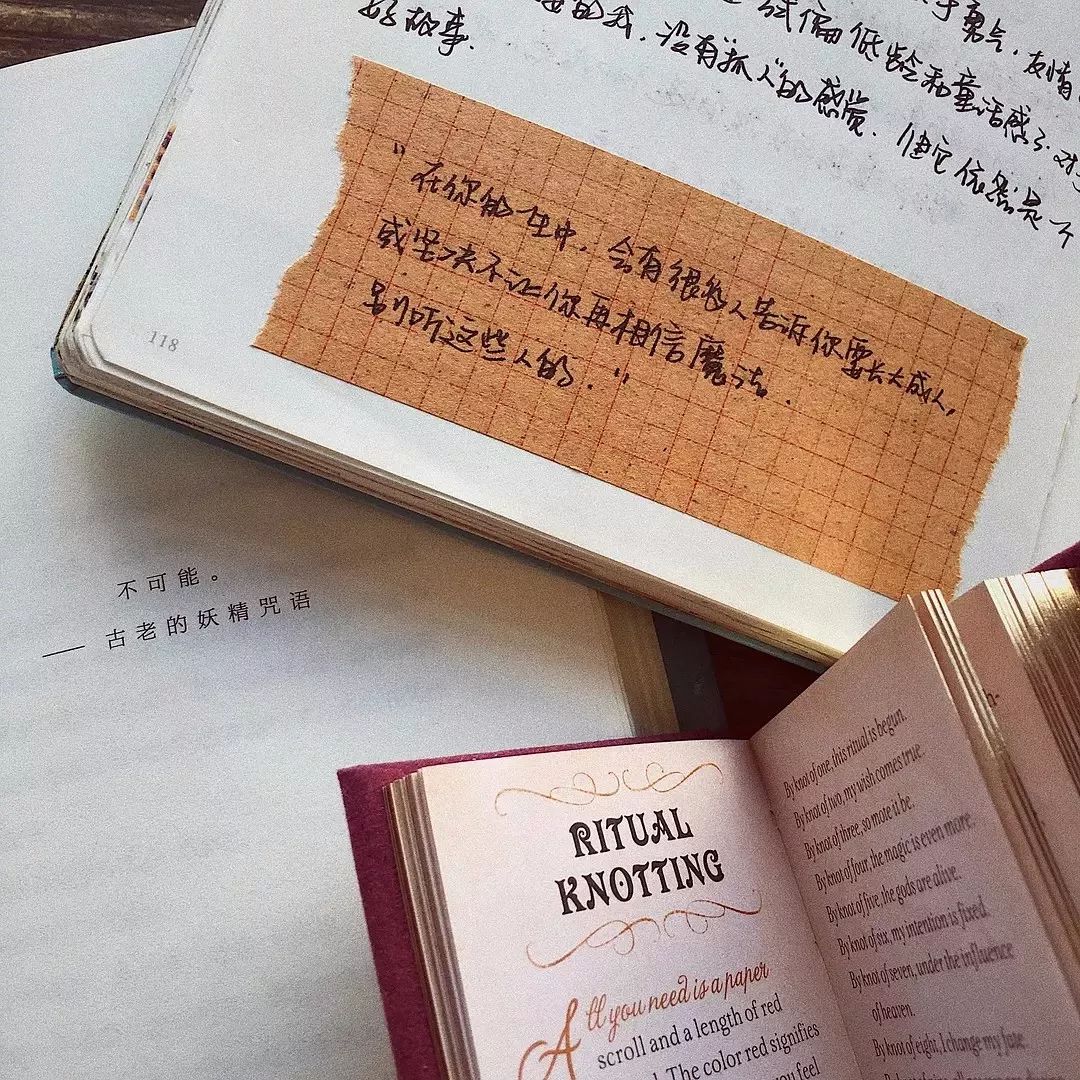 于勇气，友情
成偏低龄和童话感了．对
的我，没有"抓人"的感觉．但它依然是一个
好故事．
"在你的一生中，会有很多人告诉你要长大成人，
或坚决不让你再相信魔法．
别听这些人的．"
118
不可能。
—— 古老的妖精咒语
RITUAL
KNOTTING
All you need is a paper
scroll and a length of red
The color red signifies
you feel
By knot of one, this ritual is begun.
By knot of two, my wish comes true
By knot of three, so mote it be.
By knot of four, the magic is even more.
By knot of five, the gods are alive.
By knot of six, my intention is fixed.
By knot of seven, under the influence
of heaven.
By knot of eight, I change my fate.